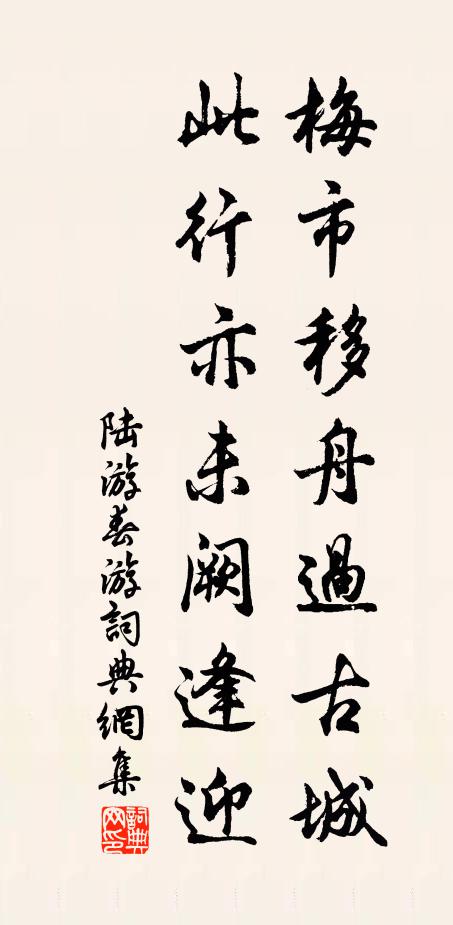 梅市移舟過古城
此行亦未闕逢迎
陸游春游詞典網集
詞典網印